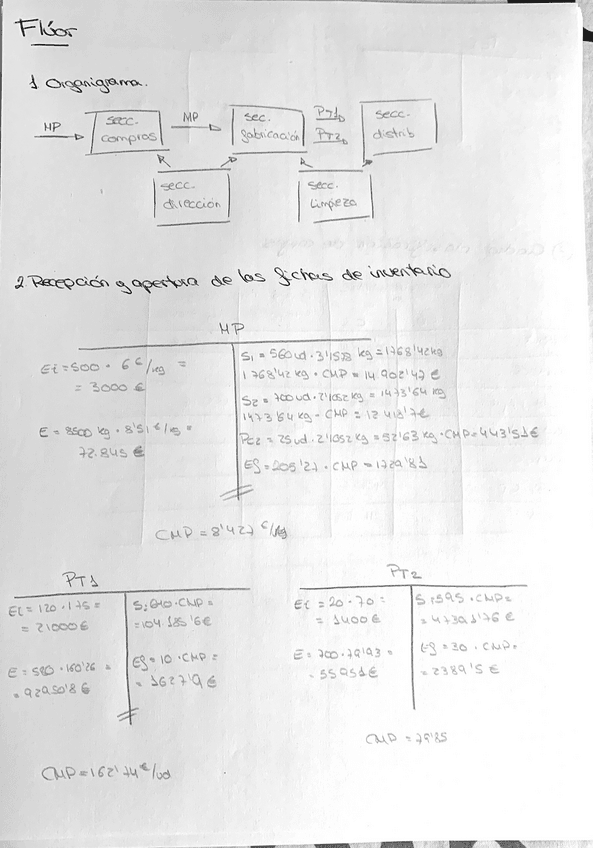 Flúor
1 Organigrama.
MP
secc. compras
MP
sec. fabricación
PT1
PT2
secc. distrib
secc. dirección
secc. limpieza
2 Recepción y apertura de las fichas de inventario
MP
Ei = 500 · 6 €/kg =
= 3000 €
E = 8500 kg · 8'51 €/kg =
72.845 €
S1 = 560 ud · 3'1578 kg = 1768'42 kg
1768'42 kg · CMP = 14.902'47 €
S2 = 700 ud · 2'1052 kg = 1473'64 kg
1473'64 kg · CMP =
Pc2 = 25 ud · 2'1052 kg = 52'63 kg · CMP = 443'51 €
Ef = 205'27 · CMP = 1729'81
CMP = 8'427 €/kg
PT1
Ei = 120 · 175 =
= 21000 €
E = 520 ·
= 92950'8 €
S: · CMP =
= 104.155'6 €
Ef = 10 · CMP =
= 1627'9 €
CMP = 162'74 €/ud
PT2
Ei = 20 · 70 =
= 1400 €
E = 700 · 79'93 =
= 55951 €
S: 595 · CMP =
= 47391'76 €
Ef = 30 · CMP =
= 2389'5 €
CMP = 79'85